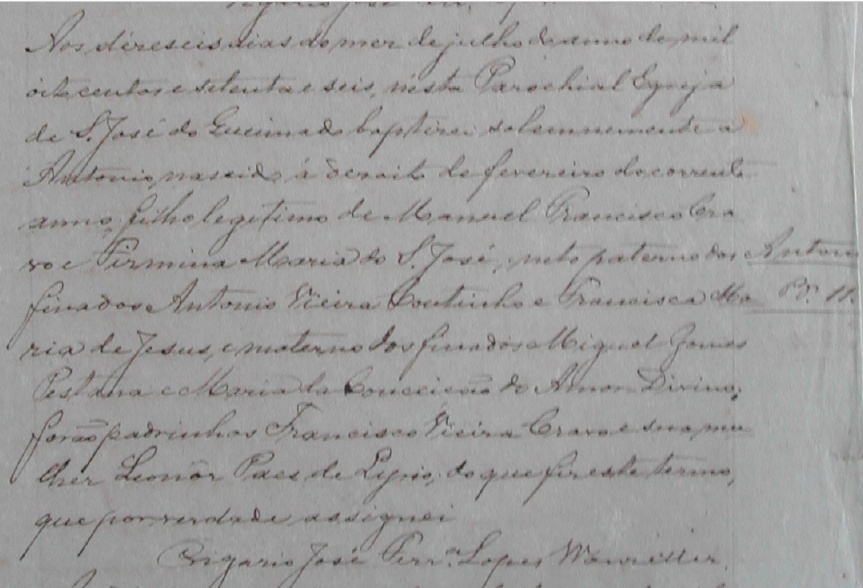 Aos dezeseis dias do mez de julho do anno de mil
oito centos e setenta e seis, nésta Parochial Egreja
de S. José do Queimado baptizei solemnemente a
Antonio, nascido á dezoito de fevereiro do corrente
anno, filho legitimo de Manuel Francisco Cra
vo e Firmina Maria de S. José, neto paterno dos
Antonio
finados Antonio Vieira Coutinho e Francisca Ma
Pr. 11.
ria de Jesus, e materno dos finados Miguel Gomes
Pestana e Maria da Conceição do Amor Divino,
forão padrinhos Francisco Vieira Cravo e sua mu
lher Leonôr Paes de, do que fiz este termo,
que por verdade assignei
O Vigario José Ferr.ª Lopes